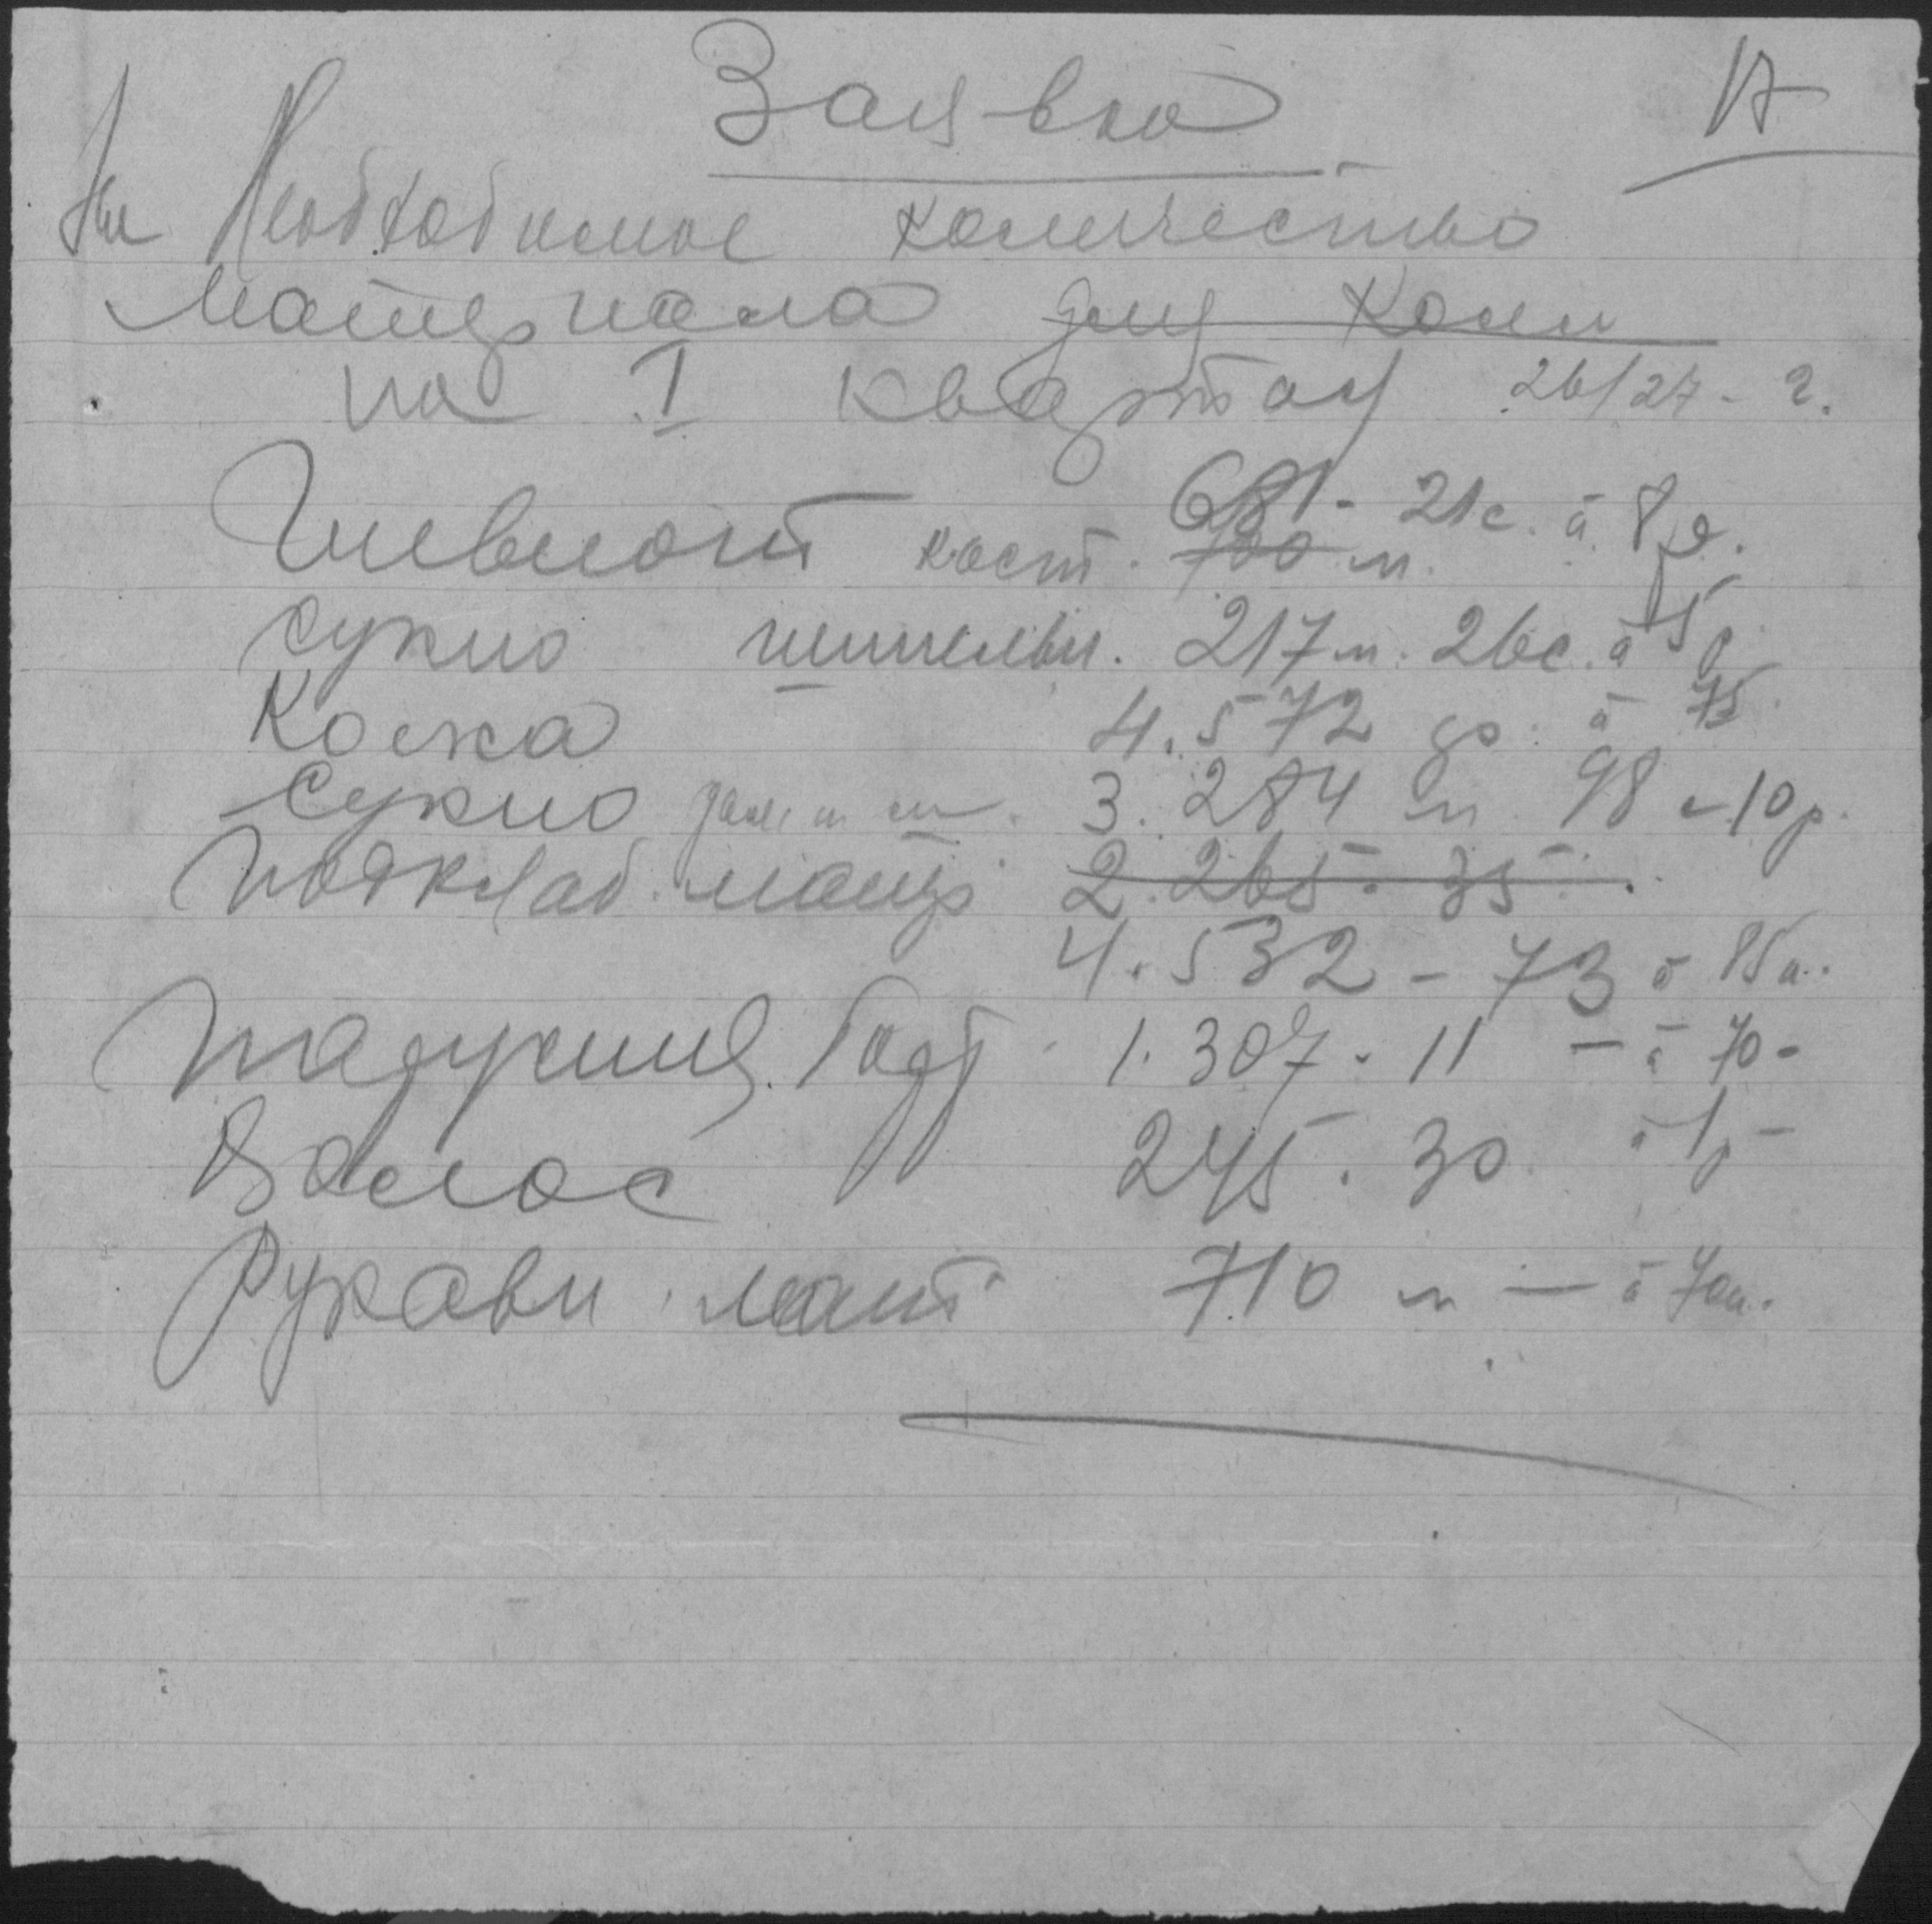 Заявка
17
На Необходимое количество
материала для Коми
на I квартал 26/27 - г.
Шевиот кост. 681 - 21 с. à 8 р.
700 м.
сукно шинельн. 217 м. 26 с. à 15 р.
Кожа 4.572 à 75
Сукно 3.284 м 98 - 10 р.
Подклад. матер 2.265. 35
4.532 - 73 à 85 к.
1.307. 11 - à 70 -
Волос 245. 30 à 1 р -
Рукавн. мат 710 м - à 70 к.